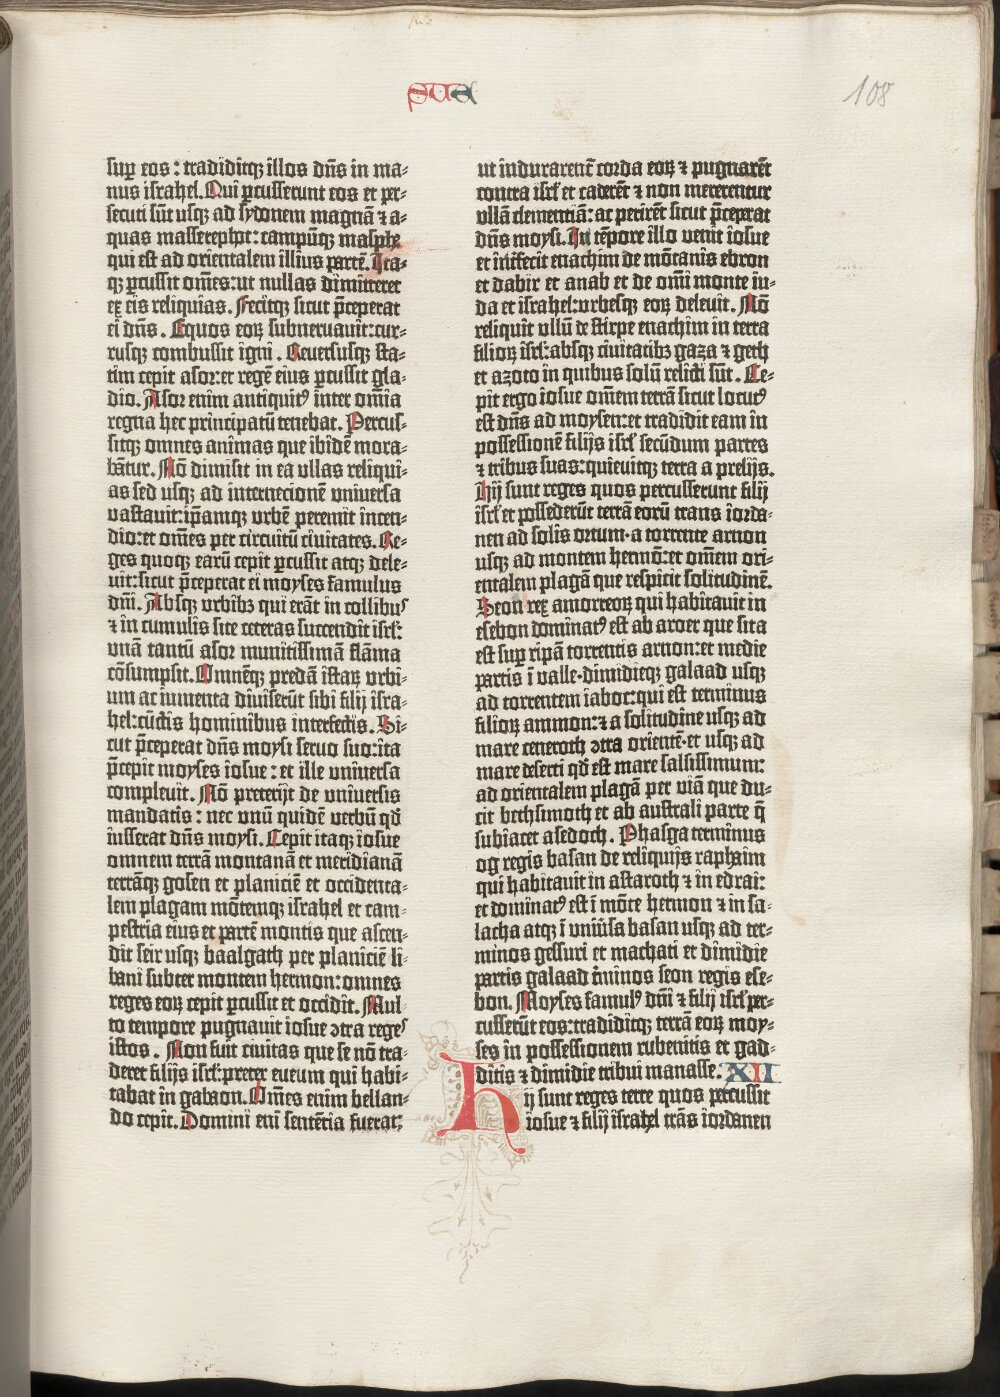 SUE
108
sup eos: tradiditq; illos dñs in ma-
nus israhel. Qui ꝑcusserunt eos et per-
secuti sūt usq; ad sydonem magnā ⁊ a-
quas masserephot: campūq; masphe
qui est ad orientalem illius partē. Ita-
q; ꝑcussit om̄es: ut nullas dimitteret
ex eis reliquias. Fecitq; sicut p̄ceperat
ei dñs. Equos eoꝝ subneruauit: cur-
rusq; combussit igni. Reuersusq; sta-
tim cepit asor: et regē eius ꝑcussit gla-
dio. Asor enim antiquitꝰ inter om̄ia
regna hec principatū tenebat. Percus-
sitq; omnes animas que ibidē mora-
bātur. Nō dimisit in ea ullas reliqui-
as sed usq; ad internecionē vniuersa
vastauit: ip̄amq; vrbē peremit incen-
dio: et om̄es per circuitū ciuitates. Re-
ges quoq; earū cepit ꝑcussit atq; dele-
uit: sicut p̄ceperat ei moyses famulus
dn̄i. Absq; vrbibꝫ qui erāt in collibus
⁊ in cumulis site ceteras succendit isrl̄:
vnā tantū asor munitissimā flāma
cōsumpsit. Omnēq; predā istaꝝ vrbi-
um ac iumenta diuiserūt sibi filij isra-
hel: cūctis hominibus interfectis. Si-
cut p̄ceperat dñs moysi seruo suo: ita
p̄cepit moyses iosue: et ille vniuersa
compleuit. Nō preterijt de vniuersis
mandatis: nec vnū quidē verbū qd̄
iusserat dñs moysi. Cepit itaq; iosue
omnem terrā montanā et meridianā
terrāq; gosen et planiciē et occidenta-
lem plagam mōtemq; israhel et cam-
pestria eius et partē montis que ascen-
dit seir usq; baalgath per planiciē li-
bani subter montem hermon: omnes
reges eoꝝ cepit ꝑcussit et occidit. Mul-
to tempore pugnauit iosue ↄtra reges
istos. Non fuit ciuitas que se nō tra-
deret filijs isrl̄: preter eueum qui habi-
tabat in gabaon. Om̄es enim bellan-
do cepit. Domini eni sentētia fuerat:
ut indurarent̄ corda eoꝝ ⁊ pugnarēt
contra isrl̄ et caderēt ⁊ non mererentur
vllā clementiā: ac perirēt sicut p̄ceprat
dñs moysi. In tēpore illo venit iosue
et int̄fecit enachim de mōtanis ebron
et dabir et anab et de om̄i monte iu-
da et israhel: vrbesq; eoꝝ deleuit. Nō
reliquit vllū de stirpe enachim in terra
filioꝝ isrl̄: absq; ciuitatibꝫ gaza ⁊ geth
et azoto in quibus solū relicti sūt. Ce-
pit ergo iosue om̄em terrā sicut locutꝰ
est dñs ad moysen: et tradidit eam in
possessionē filijs isrl̄ secūdum partes
⁊ tribus suas: quieuitq; terra a prelijs.
Hij sunt reges quos percusserunt filij
isrl̄ et possederūt terrā eorū trans iorda-
nen ad solis ortum· a torrente arnon
usq; ad montem hermō: et om̄em ori-
entalem plagā que respicit solitudinē.
Seon rex amorreoꝝ qui habitauit in
esebon dominatꝰ est ab aroer que sita
est sup ripā torrentis arnon: et medie
partis ī valle· dimidieq; galaad usq;
ad torrentem iaboc: qui est terminus
filioꝝ ammon: ⁊ a solitudine usq; ad
mare ceneroth ↄtra orientē· et usq; ad
mare deserti qd̄ est mare salsissimum:
ad orientalem plagā per viā que du-
cit bethsimoth et ab australi parte q̄
subiacet asedoth. Phasga terminus
og regis basan de reliquijs raphaim
qui habitauit in astaroth ⁊ in edrai:
et dominatꝰ est ī mōte hermon ⁊ in sa-
lacha atq; ī vniūsa basan usq; ad ter-
minos gessuri et machati et dimidie
partis galaad t̄minos seon regis ese-
bon. Moyses famulꝰ dn̄i ⁊ filij isrl̄ per-
cusserūt eos: tradiditq; terrā eoꝝ moy-
ses in possessionem rubenitis et gad-
ditis ⁊ dimidie tribui manasse. XII
Hij sunt reges terre quos percussit
iosue ⁊ filij israhel trās iordanen